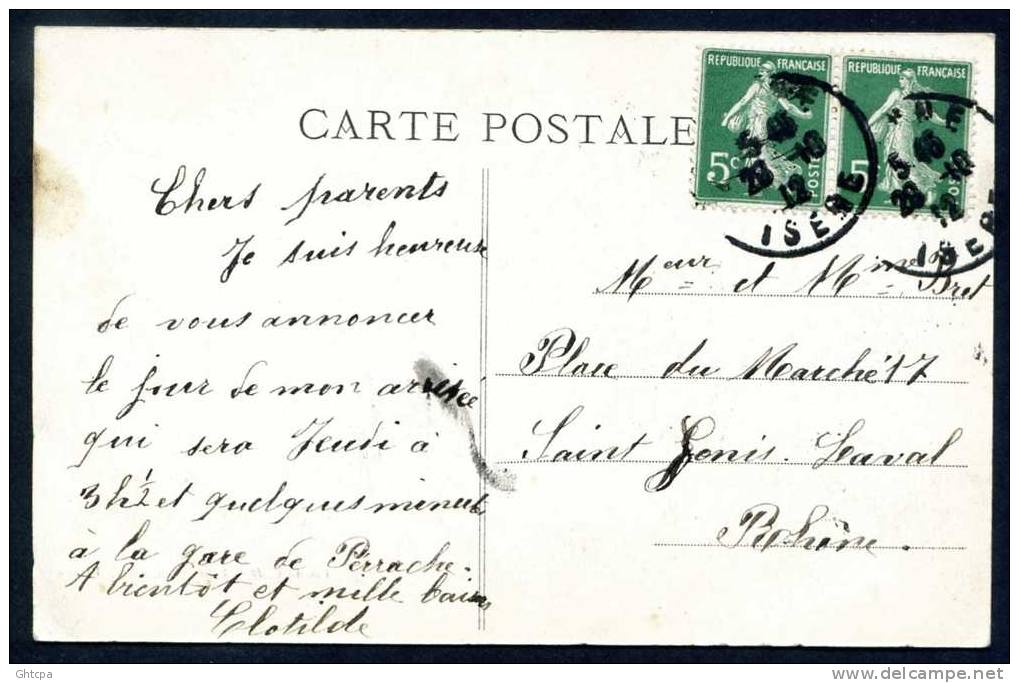 CARTE POSTALE
REPUBLIQUE FRANÇAISE
5c
POSTES
REPUBLIQUE FRANÇAISE
5
POST
5 45
29 -10
12
ISÈRE
5 45
29 -10
12
ISÈRE
Chers parents
Je suis heureuse
de vous annoncer
le jour de mon arrivée
qui sera Jeudi à
3 h ½ et quelques minutes
à la gare de Perrache.
A bientôt et mille baisers
Clotilde
Meur et Mme Bret
Place du Marché 17
Saint Genis. Laval
Rhône.
Ghtcpa
www.delcampe.net